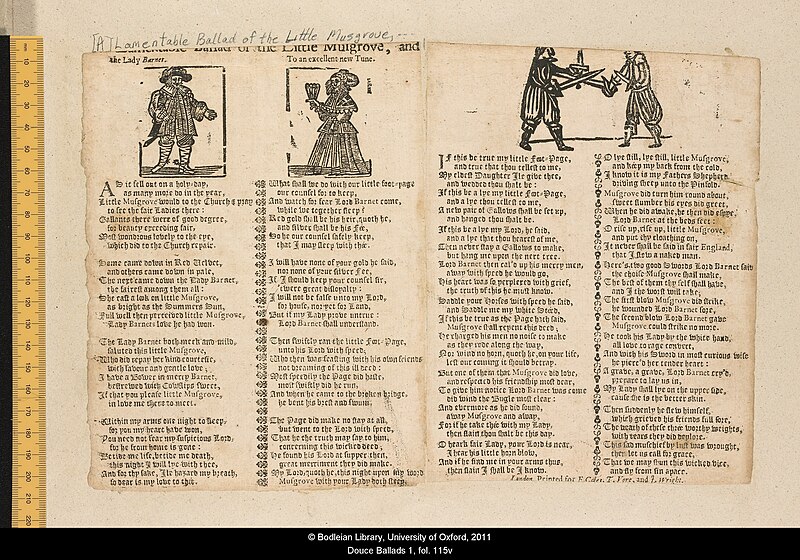 [A] Lamentable Ballad of the Little Musgrove, ...
Lamentable Ballad of the Little Musgrove, and
the Lady Barnet.
To an excellent new Tune.
AS it fell out on a holy-day,
as many more do in the year,
Little Musgrove would to the Church & pray
to see the fair Ladies there:
Gallants there were of good degree,
for beauty exceeding fair,
Most wondrous lovely to the eye,
which did to the Church repair.
Some came down in Red Velvet,
and others came down in pale,
The next came down the Lady Barnet,
the fairest among them all:
She cast a look on little Musgrove,
as bright as the Summers Sun,
Full well then perceived little Musgrove,
Lady Barnets love he had won.
The Lady Barnet both meek and mild,
saluted this little Musgrove,
Who did repay her kind courtesie,
with favour and gentle love;
I have a Bower in merry Barnet,
bestrewed with Cowslips sweet,
If that you please little Musgrove,
in love me there to meet.
Within my arms one night to sleep,
for you my heart have won,
You need not fear my suspicious Lord,
for he from home is gone:
Betide me life, betide me death,
this night I will lye with thee,
And for thy sake, Ile hazard my breath,
so dear is my love to thee.
What shall we do with our little foot-page
our counsel for to keep,
And watch for fear Lord Barnet come,
while we together sleep?
Red gold shall be his heir, quoth he,
and silver shall be his Fee,
So he our counsel safely keep,
that I may sleep with thee.
I will have none of your gold he said,
nor none of your silver Fee,
If I should keep your counsel sir,
twere great disloyalty:
I will not be false unto my Lord,
for house, nor yet for Land,
But if my Lady prove untrue:
Lord Barnet shall understand.
Then swiftly ran the little Foot-Page,
unto his Lord with speed,
Who then was feasting with his own friends
not dreaming of this ill deed:
Most speedily the Page did haste,
most swiftly did he run,
And when he came to the broken bridge,
he bent his brest and swum.
The Page did make no stay at all,
but went to the Lord with speed,
That he the truth may say to him,
concerning this wicked deed;
He found his Lord at supper then,
great merriment they did make.
My Lord, quoth he, this night upon my word
Musgrove with your Lady doth sleep.
IF this be true my little Foot-Page,
and true that thou tellest to me,
My eldest Daughter Ile give thee,
and wedded thou shalt be:
If this be a lye my little Foot-Page,
and a lye thou tellest to me,
A new pair of Gallows shall be set up,
and hanged thou shalt be.
If this be a lye my Lord, he said,
and a lye that thou hearest of me,
Then never stay a Gallows to make,
but hang me upon the next tree.
Lord Barnet then cal'd up his merry men,
away with speed he would go,
His heart was so perplexed with grief,
the truth of this he must know.
Saddle your Horses with speed he said,
and Saddle me my white Steed,
If this be true as the Page hath said,
Musgrove shall repent this deed;
He charged his men no noise to make
as they rode along the way,
Nor wind no horn, quoth he, on your life,
lest our coming it should betray.
But one of them that Musgrove did love,
and respected his friendship most dear,
To give him notice Lord Barnet was come
did wind the Bugle most clear:
And evermore as he did sound,
away Musgrove and away,
For if he take thee with my Lady,
then slain thou shalt be this day.
O heark fair Lady, your Lord is near,
I hear his little horn blow,
And if he find me in your arms thus,
then slain I shall be I know.
O lye still, lye still, little Musgrove,
and keep my back from the cold,
I know it is my Fathers Shepherd
driving sheep unto the Pinfold.
Musgrove did turn him round about,
sweet slumber his eyes did greet,
When he did awake, he then did espye
Lord Barnet at the beds feet:
O rise up, rise up, little Musgrove,
and put thy cloathing on,
It never shall be said in fair England,
that I slew a naked man.
Here's two good Swords Lord Barnet said
the choise Musgrove shall make,
The best of them thy self shall have,
and I the worst will take;
The first blow Musgrove did strike,
he wounded Lord Barnet sore,
The second blow Lord Barnet gave
Musgrove could strike no more.
He took his Lady by the white hand,
all love to rage convert,
And with his Sword in most curious wise
he pierc'd her tender heart:
A grave, a grave, Lord Barnet cry'd,
prepare to lay us in,
My Lady shall lye on the upper side,
cause she is the better skin.
Then suddenly he slew himself,
which grieved his friends full sore,
The death of these three worthy wights,
with tears they did deplore.
This sad mischief by lust was wrought,
then let us call for grace,
That we may shun this wicked vice,
and fly from sin apace.
London, Printed for F. Coles, T. Vere, and J. Wright.
© Bodleian Library, University of Oxford, 2011
Douce Ballads 1, fol. 115v